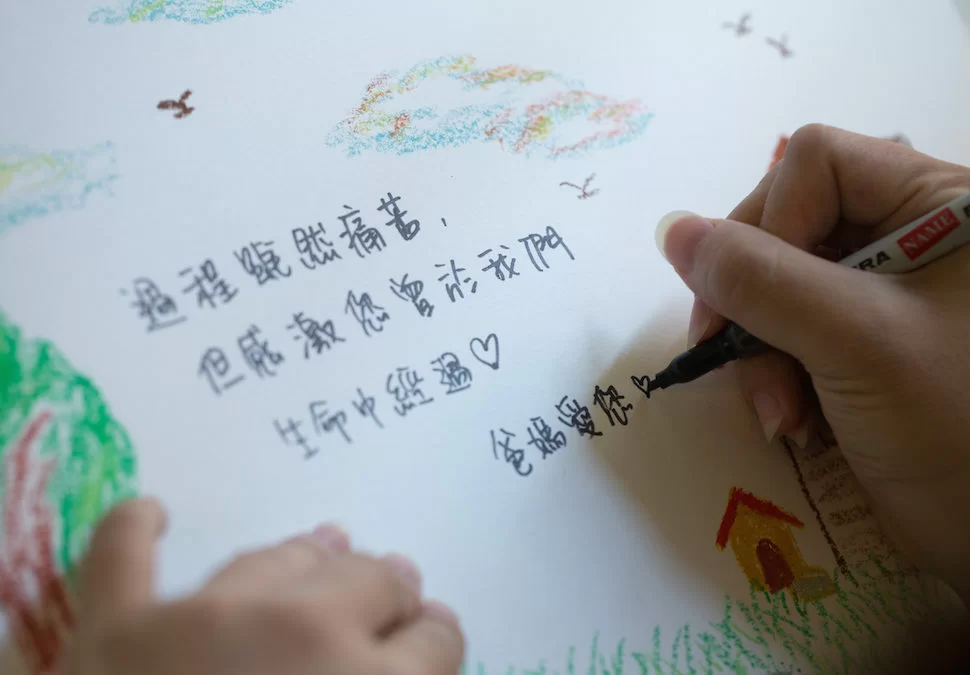 過程雖然痛苦，
但感激您曾於我們
生命中經過♡
爸媽愛您♡
NAME